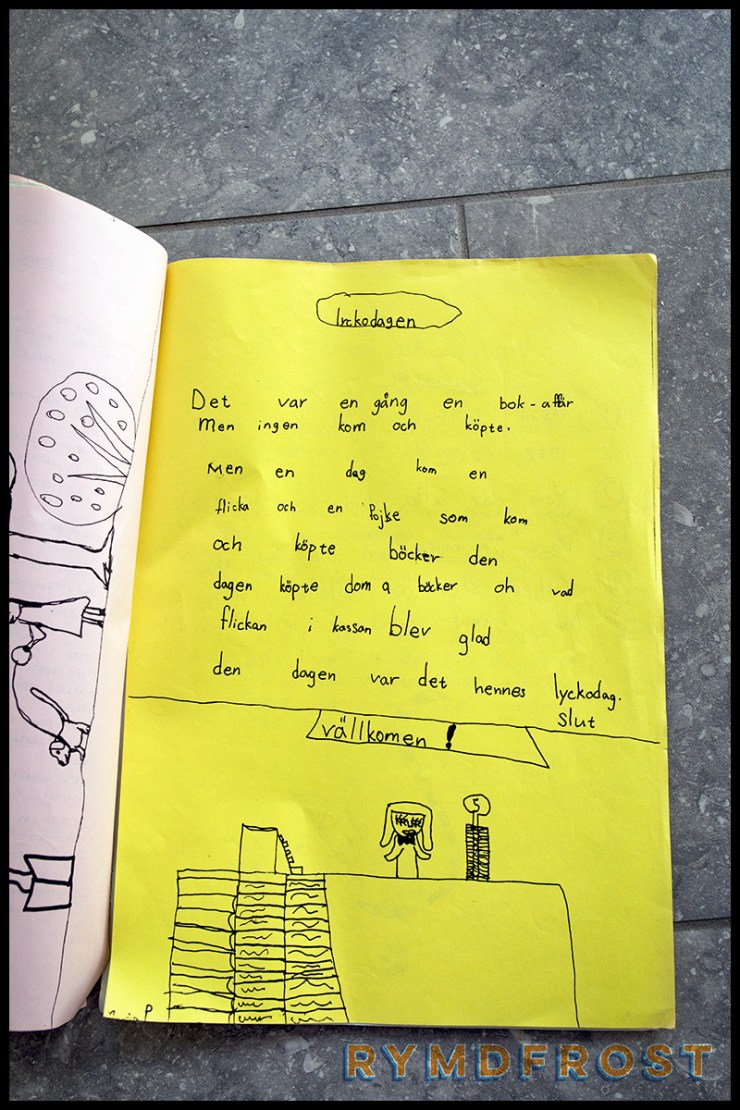 lyckodagen
Det var en gång en bok-affär
Men ingen kom och köpte.
Men en dag kom en
flicka och en Pojke som kom
och köpte böcker den
dagen köpte dom 9 böcker oh vad
flickan i kassan blev glad
den dagen var det hennes lyckodag.
slut
vällkomen !
5
RYMDFROST